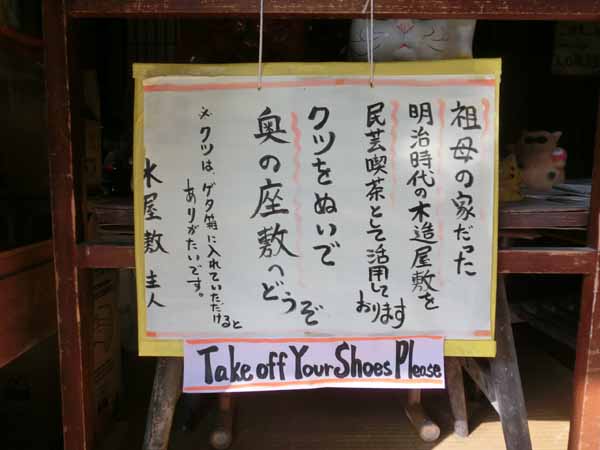 祖母の家だった
明治時代の木造屋敷を
民芸喫茶として活用して
おります
クツをぬいで
奥の座敷へどうぞ
※クツは、ゲタ箱に入れていただけると
ありがたいです。
水屋敷 主人
Take off Your Shoes Please